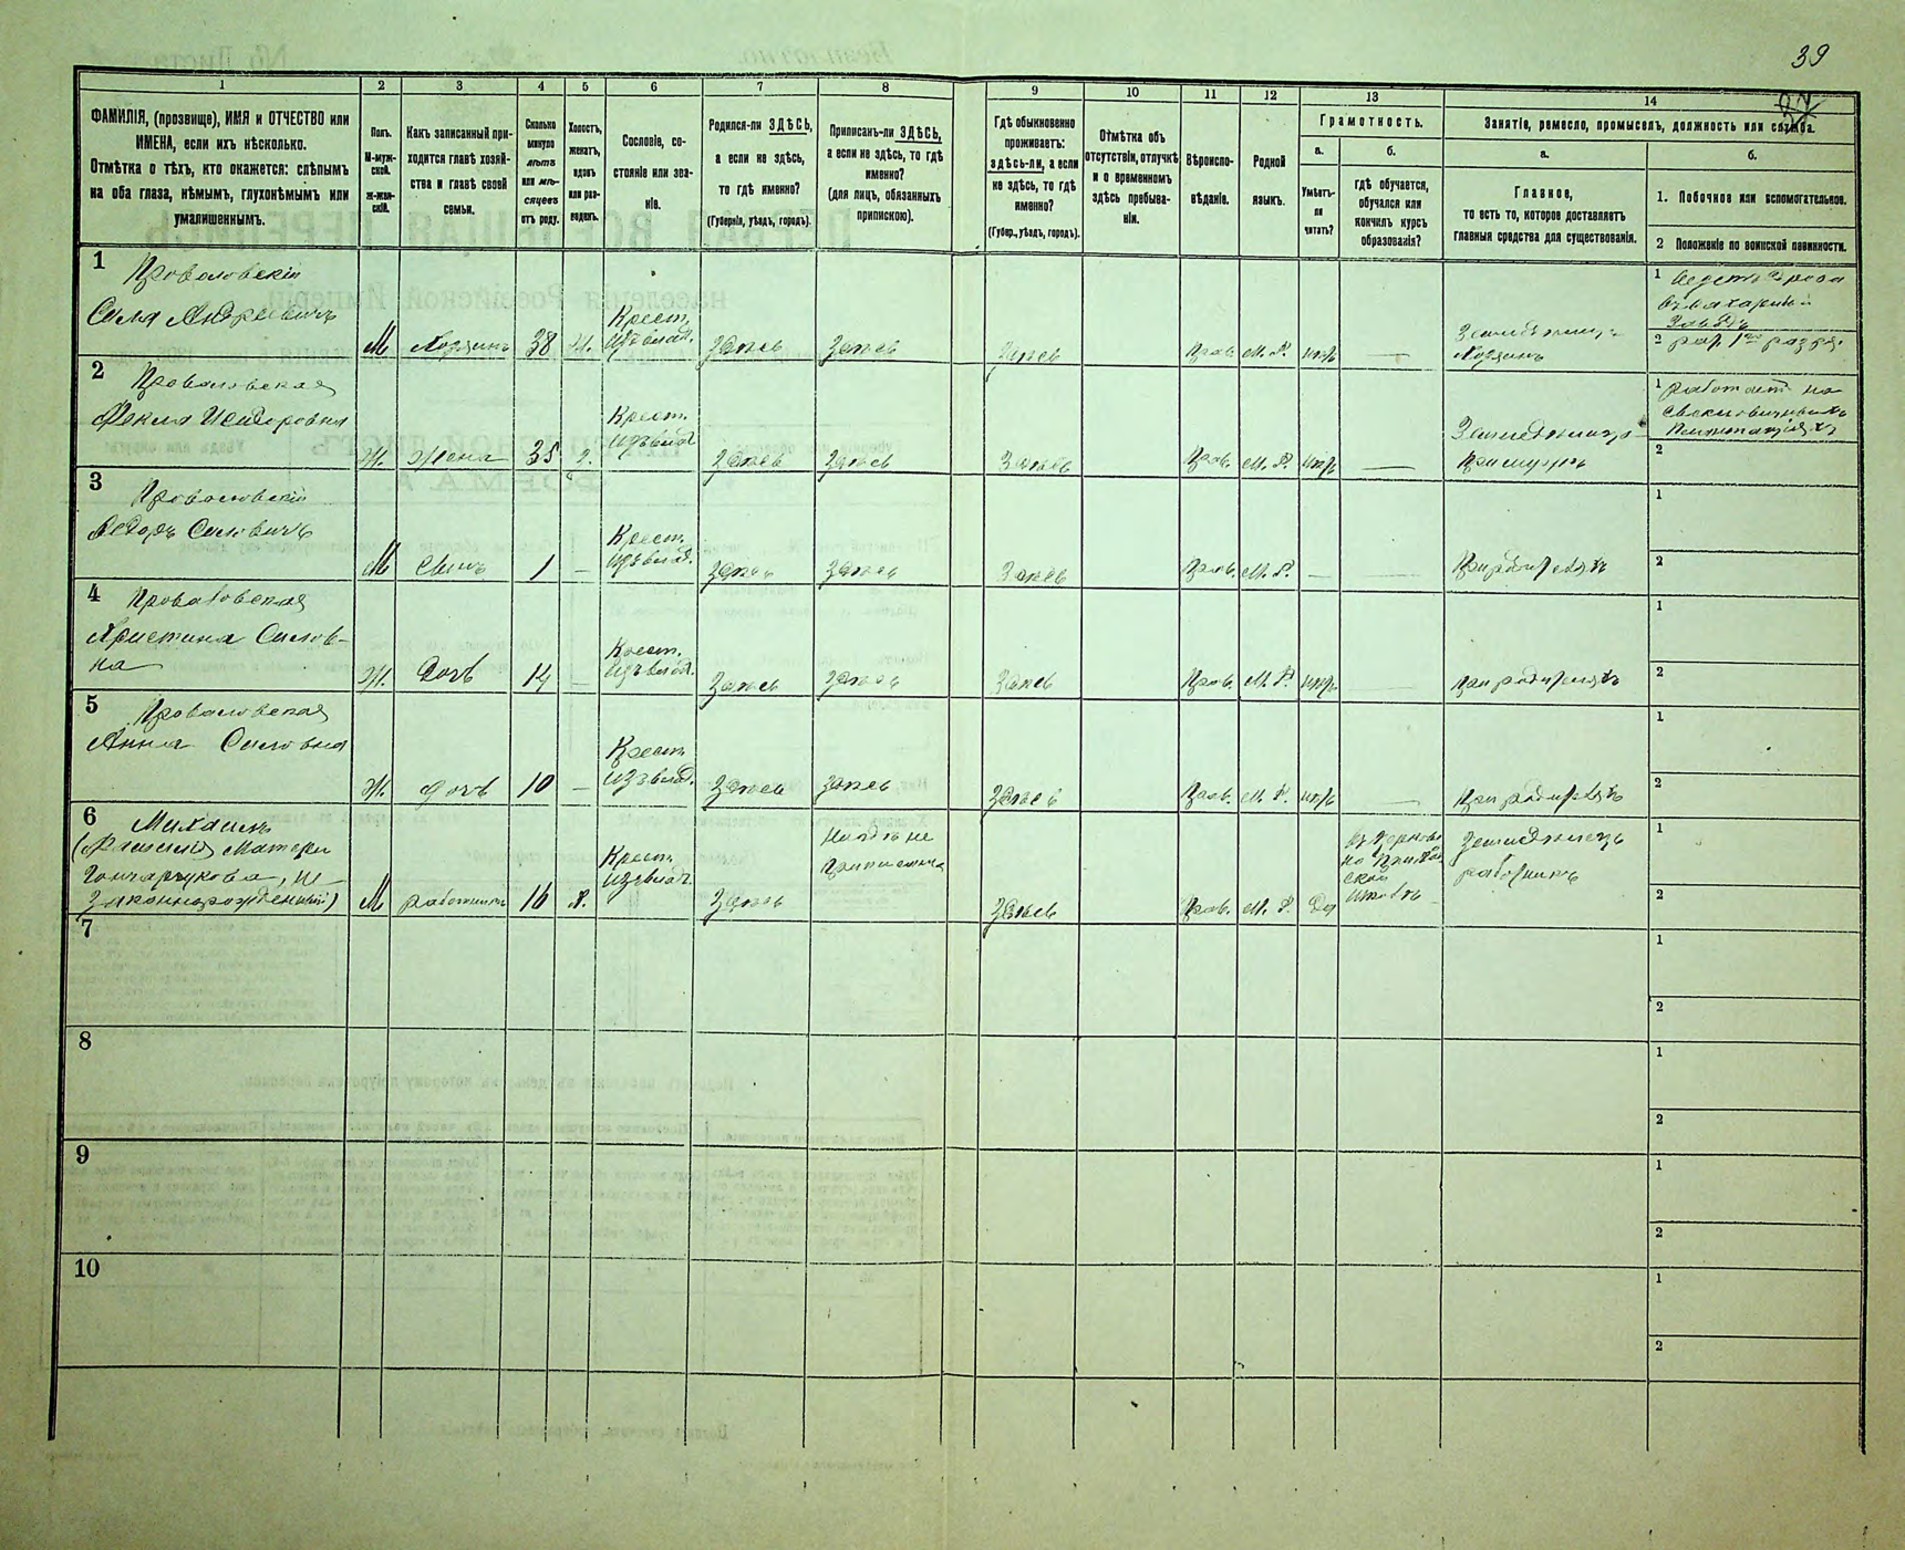 39
1 2 3 4 5 6 7 8 9 10 11 12 13 14
ФАМИЛІЯ, (прозвище), ИМЯ и ОТЧЕСТВО или
ИМЕНА, если ихъ нѣсколько.
Отмѣтка о тѣхъ, кто окажется: слѣпымъ
на оба глаза, нѣмымъ, глухонѣмымъ или
умалишеннымъ.
Полъ.
М-муж-
ской.
Ж-жен-
скій.
Какъ записанный при-
ходится главѣ хозяй-
ства и главѣ своей
семьи.
Сколько
минуло
лѣтъ
или мѣ-
сяцевъ
отъ роду.
Холостъ,
женатъ,
вдовъ
или раз-
веденъ.
Сословіе, со-
стояніе или зва-
ніе.
Родился-ли ЗДѢСЬ,
а если не здѣсь,
то гдѣ именно?
(Губернія, уѣздъ, городъ).
Приписанъ-ли ЗДѢСЬ,
а если не здѣсь, то гдѣ
именно?
(для лицъ, обязанныхъ
припискою).
Гдѣ обыкновенно
проживаетъ:
здѣсь-ли, а если
не здѣсь, то гдѣ
именно?
(Губер., уѣздъ, городъ).
Отмѣтка объ
отсутствіи, отлучкѣ
и о временномъ
здѣсь пребыва-
ніи.
Вѣроиспо-
вѣданіе.
Родной
языкъ.
Грамотность.
а.
Умѣетъ-
ли
читать?
б.
гдѣ обучается,
обучался или
кончилъ курсъ
образованія?
Занятіе, ремесло, промыселъ, должность или служба.
а.
Главное,
то есть то, которое доставляетъ
главныя средства для существованія.
б.
1. Побочное или вспомогательное.
2 Положеніе по воинской повинности.
1 Проваловскій
Сила Андреевичъ
М Хозяинъ 38 Ж. Крест.
изъ влад. Здесь Здесь Здесь Прав. М. Р. нѣтъ — Земледелецъ
Хозяинъ
1
заводѣ
2 рат. 1го разря.
2 Проваловская
Фекла Исидоровна
Ж. Жена 35 З. Крест.
изъ влад. Здесь Здесь Здесь Прав. М. Р. нѣтъ — Земледелецъ
При мужѣ
1 работаетъ на
свекловичныхъ
плантаціяхъ
2
3 Проваловскій
Ѳедоръ Силовичъ
М Сынъ 1 — Крест.
изъ влад. Здесь Здесь Здесь Прав. М. Р. — — При родителяхъ
1
2
4 Проваловская
Христина Силов-
на
Ж. Дочь 14 — Крест.
изъ влад. Здесь Здесь Здесь Прав. М. Р. нѣтъ — При родителяхъ
1
2
5 Проваловская
Анна Силовна
Ж. Дочь 10 — Крест.
изъ влад. Здесь Здесь Здесь Прав. М. Р. нѣтъ — При родителяхъ
1
2
6 Михаилъ
(Фамилія Матери
Гончарукова, не-
законнорожденный)
М работникъ 16 Х. Крест.
изъ влад. Здесь Нигдѣ не
приписанъ Здесь Прав. М. Р. Да
школѣ
Земледелецъ
работникъ
1
2
7
1
2
8
1
2
9
1
2
10
1
2